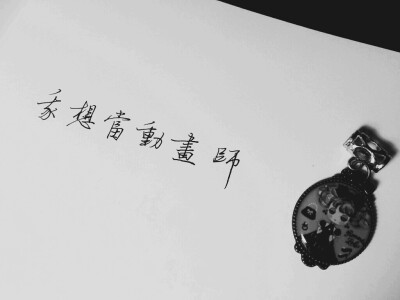 我想當動畫師